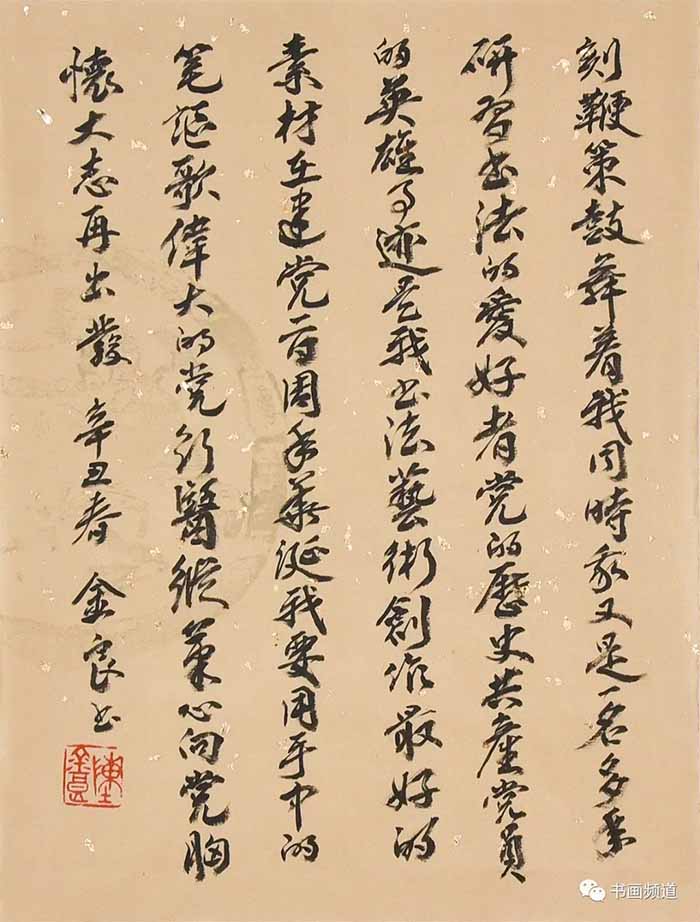 刻鞭策鼓舞着我同時我又是一名多年
研習书法的愛好者党的歷史共產党員
的英雄事迹是我书法藝術創作最好的
素材在建党百周年華诞我要用手中的
笔謳歌偉大的党行醫縱筆心向党胸
懷大志再出發 辛丑春 金良书
陳金良
书画频道